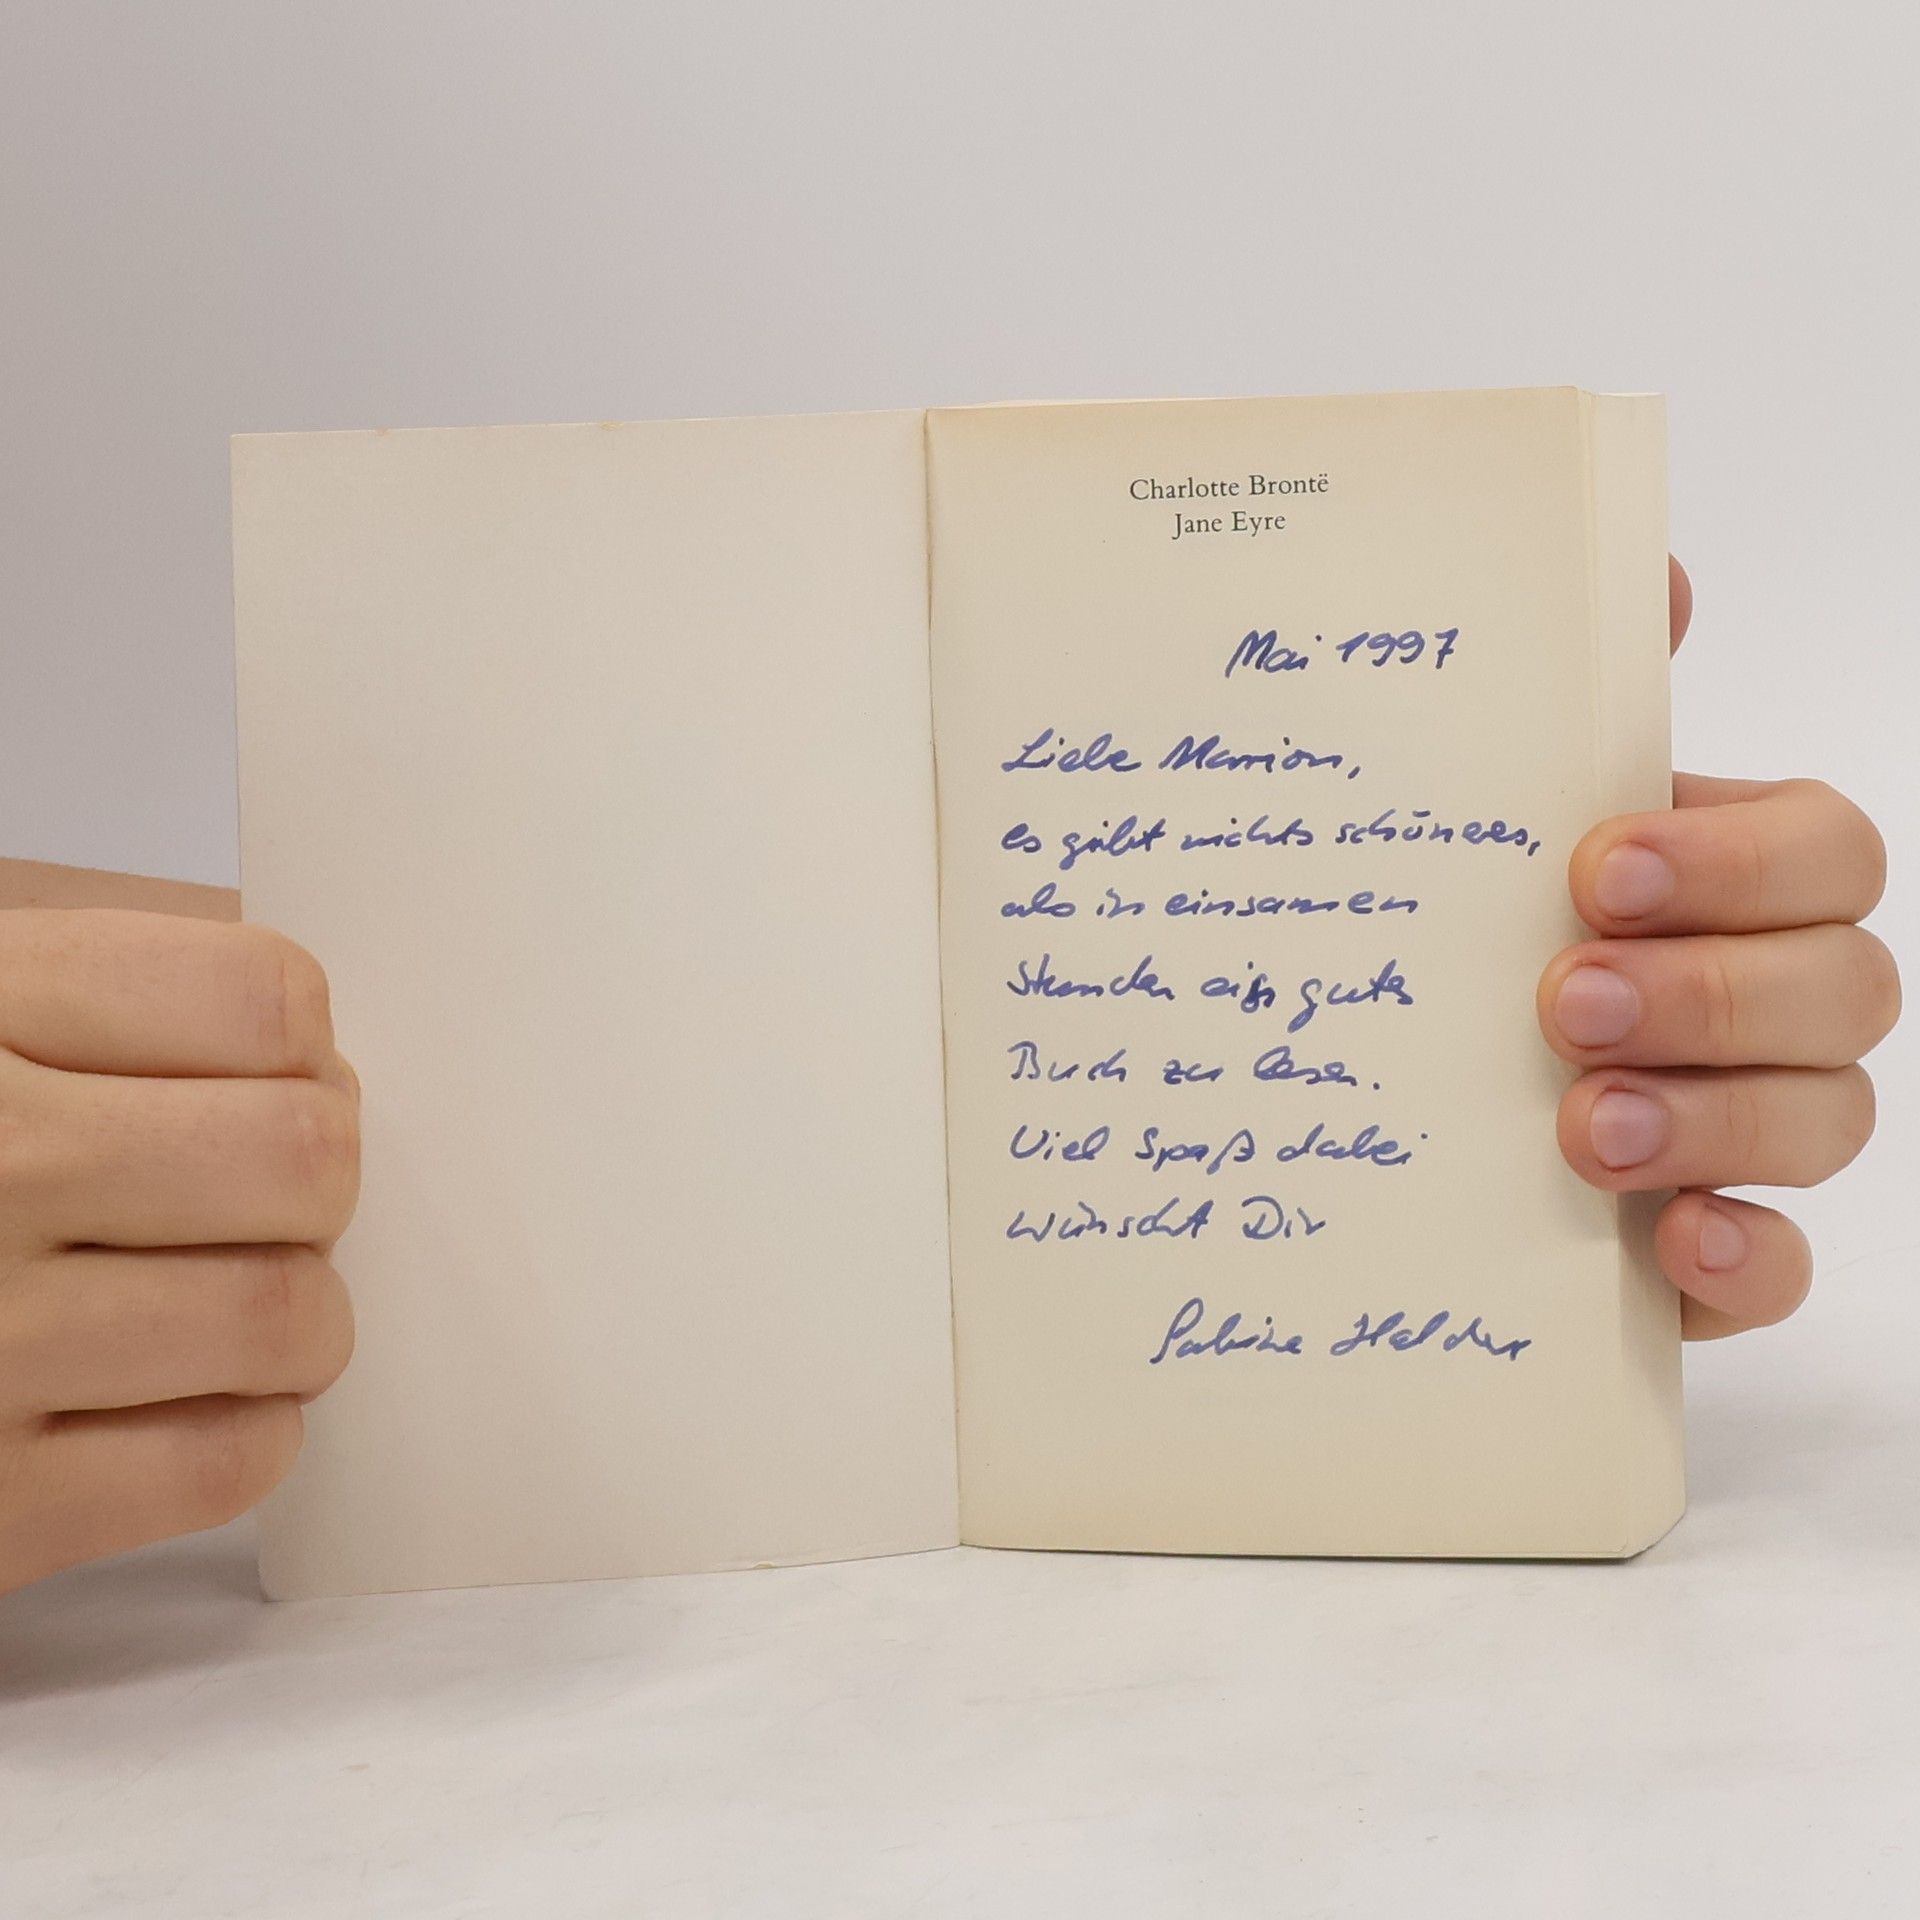 Charlotte Brontë
Jane Eyre
Mai 1997
Liebe Marion,
es gibt nichts schöneres,
als in einsamen
Stunden ein gutes
Buch zu lesen.
Viel Spaß dabei
wünscht Dir
Sabine